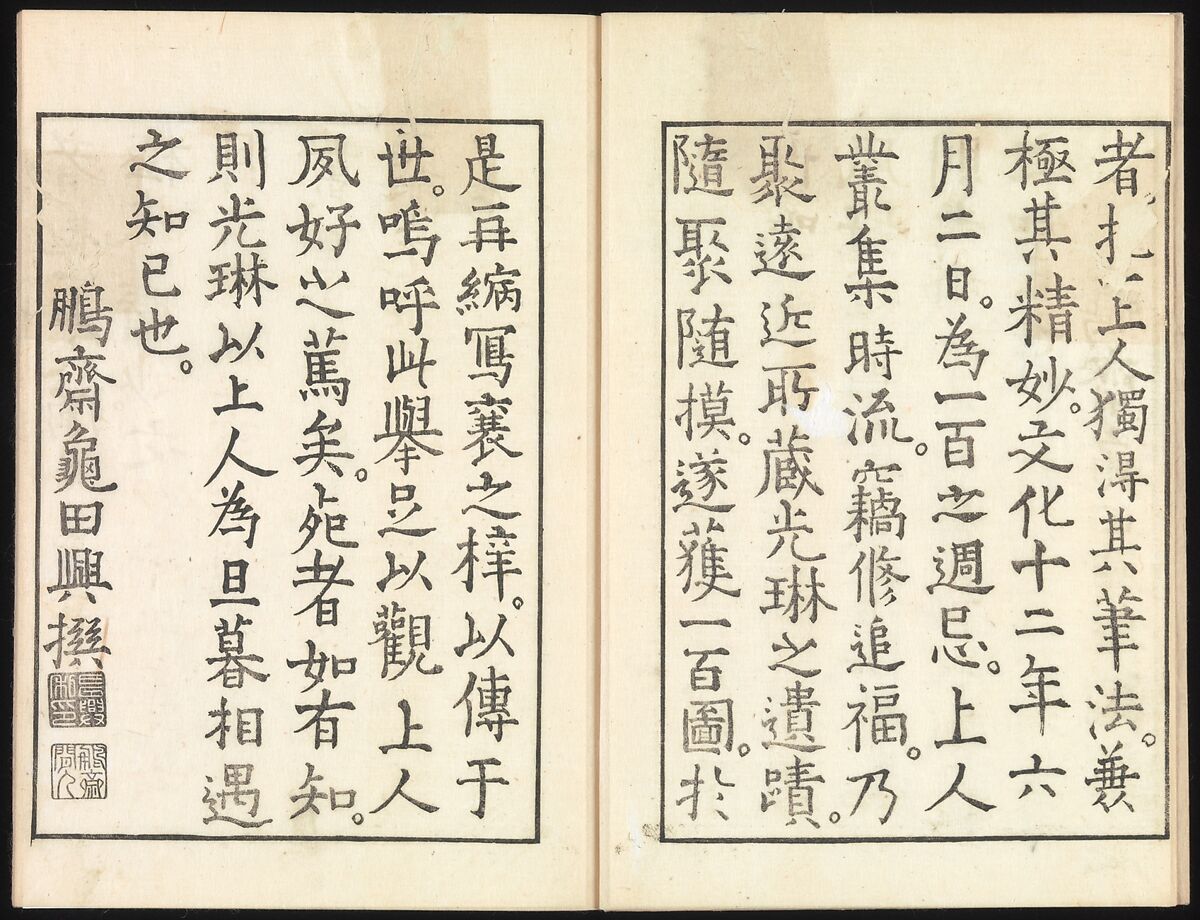 者。上人獨淂其筆法。兼
極其精妙。文化十二年六
月二日。為一百之週忌。上人
叢集時流。竊修追福。乃
聚遠近所藏光琳之遺蹟。
隨聚隨摸。遂獲一百圖。扵
是再縮寫襄之梓。以傳于
世。嗚呼此舉足以觀上人
夙好之篤矣。死者如有知。
則光琳以上人為旦暮相遇
之知己也。
鵬齋龜田興撰
長興私印
鵬齋閒人